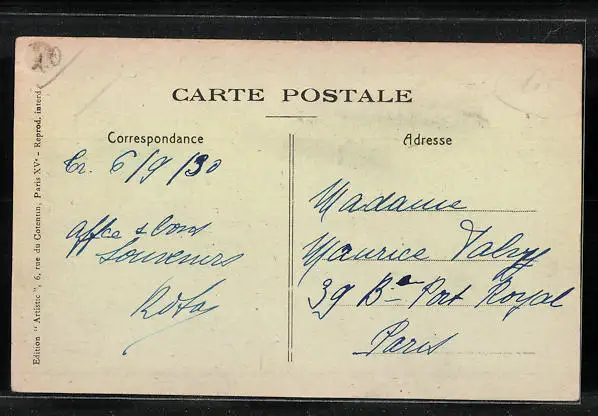 CARTE POSTALE
Correspondance
Adresse
6/9/30
Souvenirs
Madame
Maurice
39 Bd Port Royal
Paris
Edition "Artistic", 6, rue du Cotentin, Paris XVe - Reprod. interd.